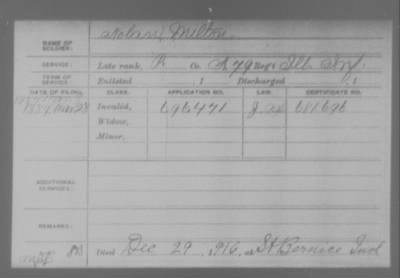 Milton
NAME OF SOLDIER:
SERVICE: Late rank, P. Co. A 79 Reg't Ill. Inf.
TERM OF SERVICE: Enlisted , 1 Discharged , 1
DATE OF FILING. CLASS. APPLICATION NO. LAW. CERTIFICATE NO.
1889 Mar 28 Invalid, 696471 681696
Widow,
Minor,
ADDITIONAL SERVICES:
REMARKS:
Died Dec 29, 1916, at St Bernice Ind